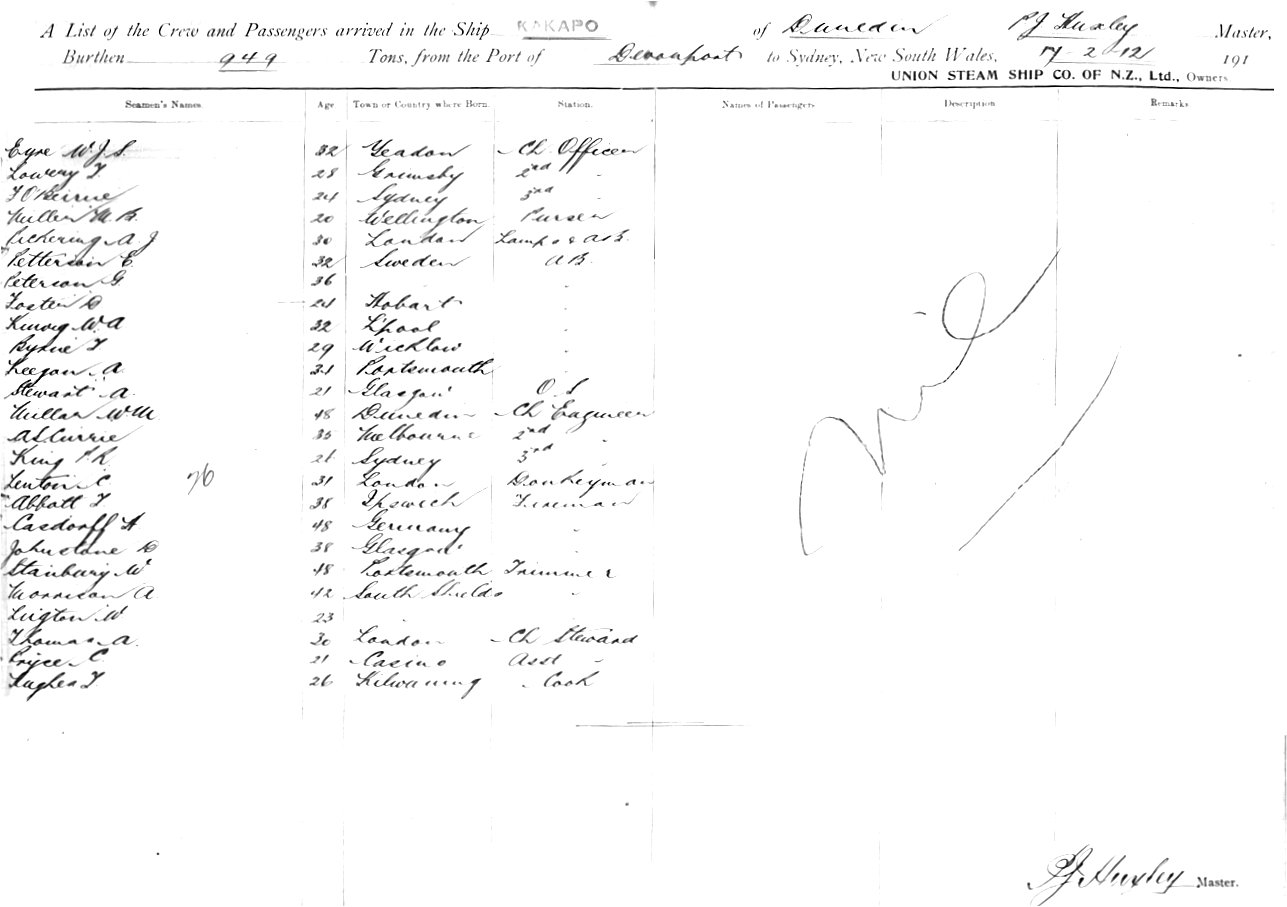 A List of the Crew and Passengers arrived in the Ship KAKAPO of Dunedin P J Huxley Master,
Burthen 949 Tons, from the Port of Devonport to Sydney, New South Wales, 17-2-12 191
UNION STEAM SHIP CO. OF N.Z., Ltd., Owners
Seamen's Names. Age Town or Country where Born. Station. Names of Passengers Description Remarks
Eyre W. J. S. 32 Yeadon Ch Officer
Lowery T. 28 Grimsby 2nd "
T O'Beirne 24 Sydney 3rd "
Miller M. B. 20 Wellington Purser
Pickering A. J 30 London Lamps & AB.
Petterson E. 32 Sweden AB.
Peterson G. 36 " "
Foster D 24 Hobart "
W. A 32 L'pool "
Byrne T 29 Wicklow "
Keegan A. 31 Portsmouth "
Stewart A. 21 Glasgow O.S
Millar W M 48 Dunedin Ch Engineer
A S Currie 35 Melbourne 2nd "
King P. R. Sydney 3rd "
Lenton C 31 London Donkeyman
76
Abbott T 38 Ipswich Fireman
Casdorff H 48 Germany "
Johnstone D 38 Glasgow "
Stanbury W 48 Portsmouth Trimmer
Morrison A 42 South Shields "
Ligton W 23 " "
Thomas A. 30 London Ch Steward
Pryce C. 21 Casino Asst "
Hughes T 26 Kilwinning Cook
Nil
P J Huxley Master.